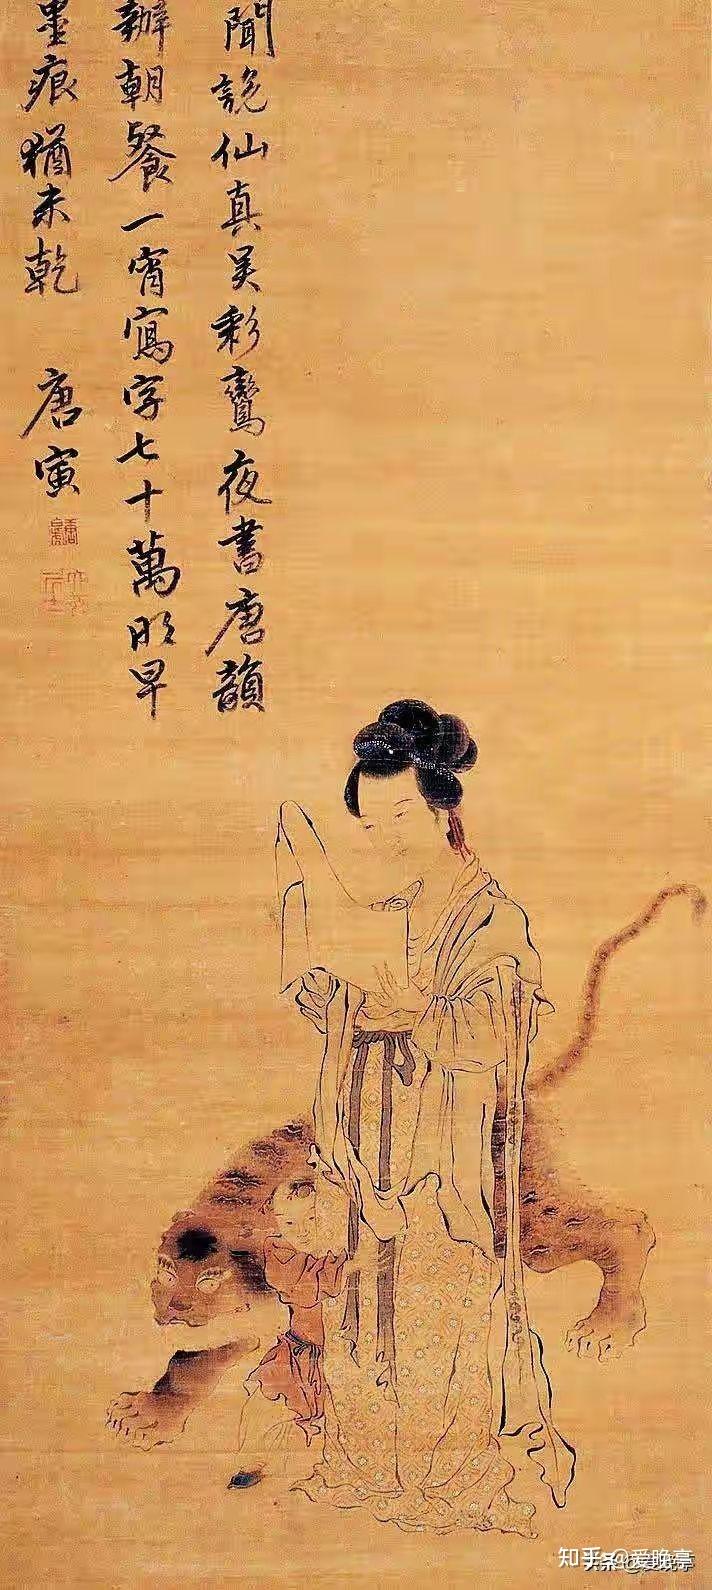 聞說仙真吳彩鸞夜書唐韻
辦朝餐一宵寫字七十萬明早
墨痕猶未乾 唐寅
知乎 @爱晚亭